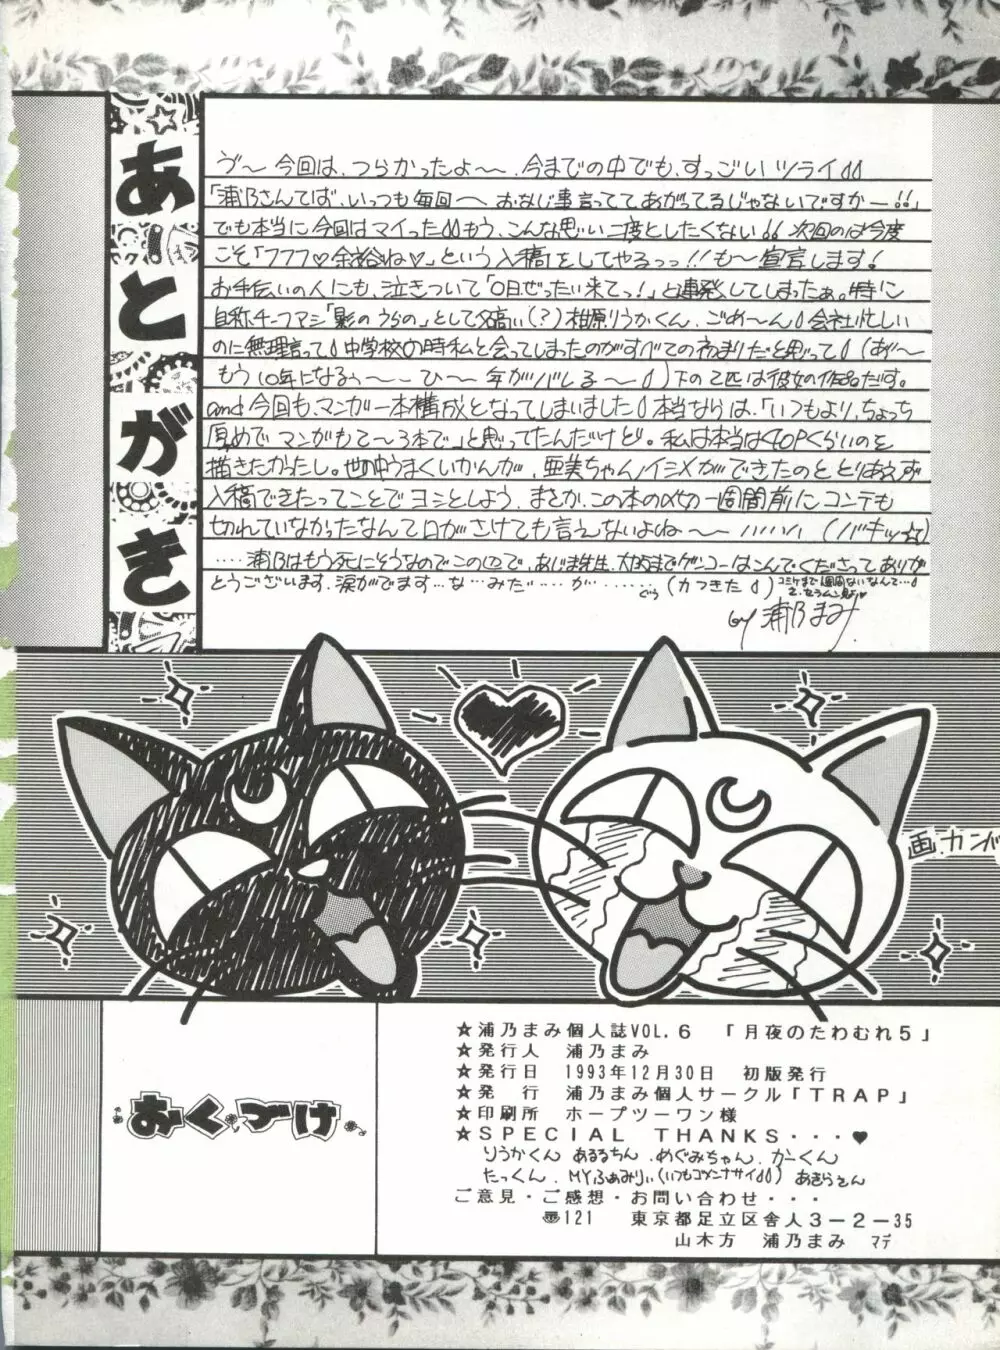 あとがき
ゔ〜今回は、つらかったよ〜、今までの中でも、すっごいツライ
「浦乃さんてば、いつも毎回〜おなじ事言ってて あがってるじゃないですかー!!」
でも本当に今回はマイった もう、こんな思い二度としたくない!! 次回のは今度
こそ「フフフ♡余裕ね♡」という入稿をしてやるっっ!!も〜宣言します!
お手伝いの人にも、泣きついて「0日ぜったい来てっ!」と連発してしまったぁ。特に
自称チーフアシ「影のうらの」として名高い(?)相原りうかくん、ごめ〜ん 会社忙しい
のに無理言って 中学校の時私と会ってしまったのがすべての初まりだと思って (あ゙〜
もう10年になるぅ〜〜 ひ〜 年がバレる〜)下の2匹は彼女の作品だす。
and今回も、マンガ一本構成となってしまいました 本当ならは、「いつもより、ちょっち
厚めで マンガもて〜3本で」と思ってたんだけど。私は本当は40Pくらいのを
描きたかったし。世の中うまくいかんが、亜美ちゃんイジメができたのと とりあえず
入稿できたってことで ヨシとしよう、まさか、この本の〆切一週間前にコンテも
切れていなかったなんて口がさけても言えないよね〜〜 ハハハハ (バキッ☆)
‥‥浦乃はもう死にそうなのでこの辺で、あじま先生、大阪までゲンコーはこんでくださってありが
とうございます、涙がでます…な…みだ…が…… ぐぅ (カつきた)
コミケまで1週間ないなんて…
by 浦乃まみ
画.カンガ
おくづけ
★浦乃まみ個人誌VOL.6 「月夜のたわむれ5」
★発行人 浦乃まみ
★発行日 1993年12月30日 初版発行
★発 行 浦乃まみ個人サークル「TRAP」
★印刷所 ホープツーワン様
★SPECIAL THANKS・・・♥
りうかくん あるるちん、めぐみちゃん、かーくん
たっくん、MYふぁみりぃ(いつもゴメンナサイ) あきらさん
ご意見・ご感想・お問い合わせ・・・
〠121 東京都足立区舎人3−2−35
山木方 浦乃まみ マデ